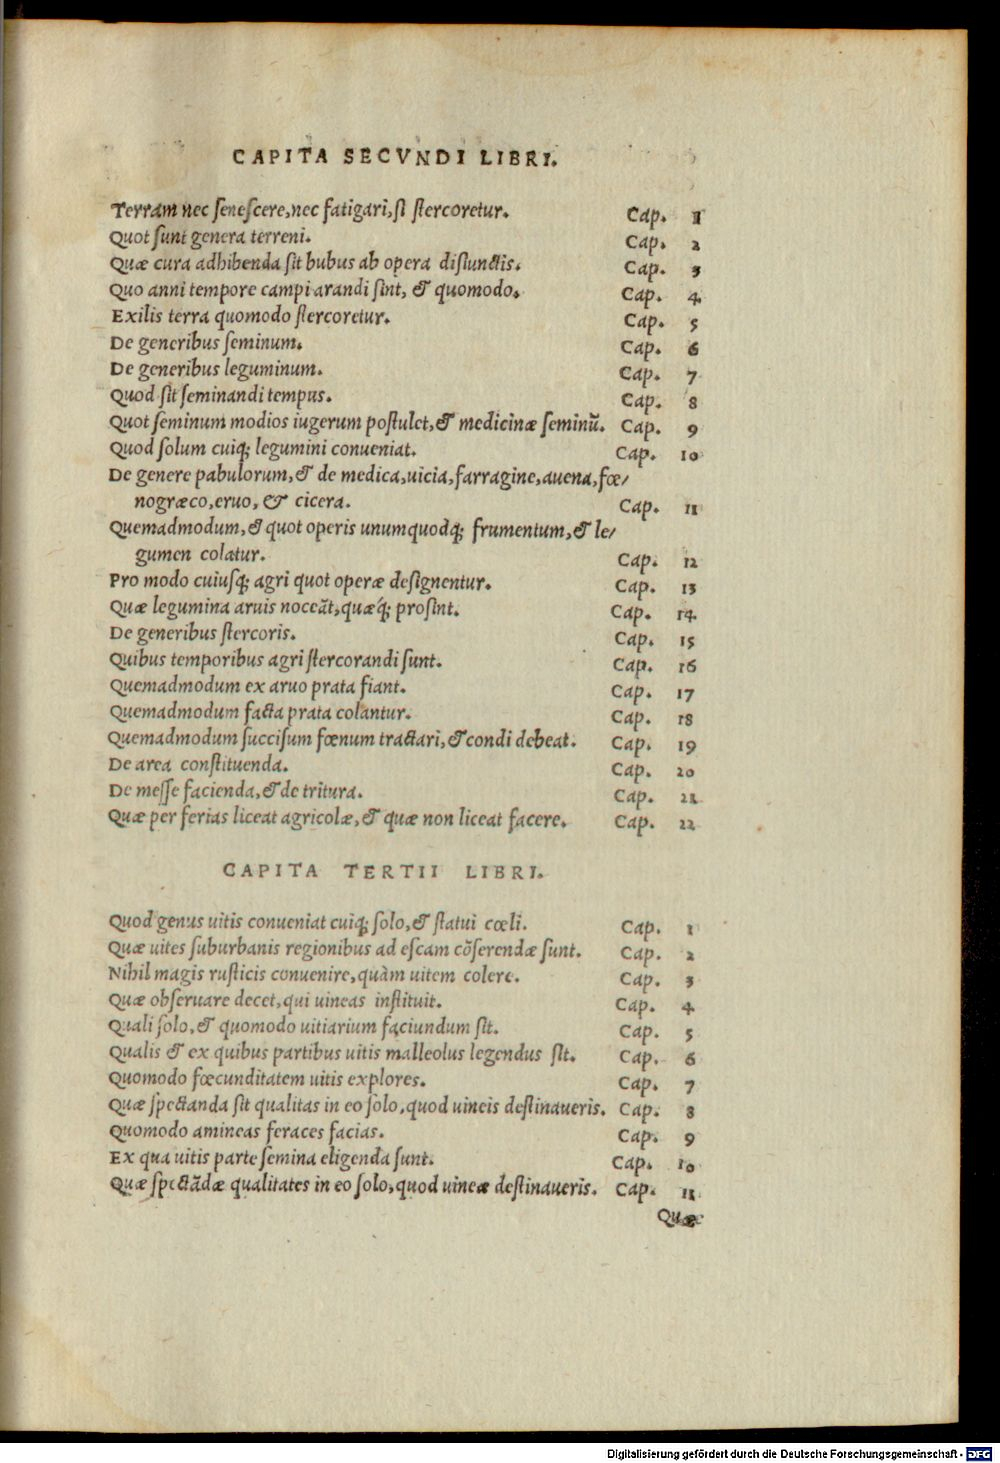 CAPITA SECVNDI LIBRI.
Terram nec senescere, nec fatigari, si stercoretur. Cap. 1
Quot sunt genera terreni. Cap. 2
Quæ cura adhibenda sit bubus ab opera disiunctis. Cap. 3
Quo anni tempore campi arandi sint, & quomodo. Cap. 4
Exilis terra quomodo stercoretur. Cap. 5
De generibus seminum. Cap. 6
De generibus leguminum. Cap. 7
Quod sit seminandi tempus. Cap. 8
Quot seminum modios iugerum postulet, & medicinæ seminũ. Cap. 9
Quod solum cuiq; legumini conueniat. Cap. 10
De genere pabulorum, & de medica, uicia, farragine, auena, fœ/
nogræco, eruo, & cicera. Cap. 11
Quemadmodum, & quot operis unumquodq; frumentum, & le/
gumen colatur. Cap. 12
Pro modo cuiusq; agri quot operæ designentur. Cap. 13
Quæ legumina aruis noceãt, quæq́; prosint. Cap. 14
De generibus stercoris. Cap. 15
Quibus temporibus agri stercorandi sunt. Cap. 16
Quemadmodum ex aruo prata fiant. Cap. 17
Quemadmodum facta prata colantur. Cap. 18
Quemadmodum succisum fœnum tractari, & condi debeat. Cap. 19
De area constituenda. Cap. 20
De messe facienda, & de tritura. Cap. 21
Quæ per ferias liceat agricolæ, & quæ non liceat facere. Cap. 22
CAPITA TERTII LIBRI.
Quod genus uitis conueniat cuiq; solo, & statui cœli. Cap. 1
Quæ uites suburbanis regionibus ad escam cõserendæ sunt. Cap. 2
Nihil magis rusticis conuenire, quàm uitem colere. Cap. 3
Quæ obseruare decet, qui uineas instituit. Cap. 4
Quali solo, & quomodo uitiarium faciundum sit. Cap. 5
Qualis & ex quibus partibus uitis malleolus legendus sit. Cap. 6
Quomodo fœcunditatem uitis explores. Cap. 7
Quæ spectanda sit qualitas in eo solo, quod uineis destinaueris. Cap. 8
Quomodo amineas feraces facias. Cap. 9
Ex qua uitis parte semina eligenda sunt. Cap. 10
Quæ spectãdæ qualitates in eo solo, quod uineæ destinaueris. Cap. 11
Quæ
Digitalisierung gefördert durch die Deutsche Forschungsgemeinschaft - DFG